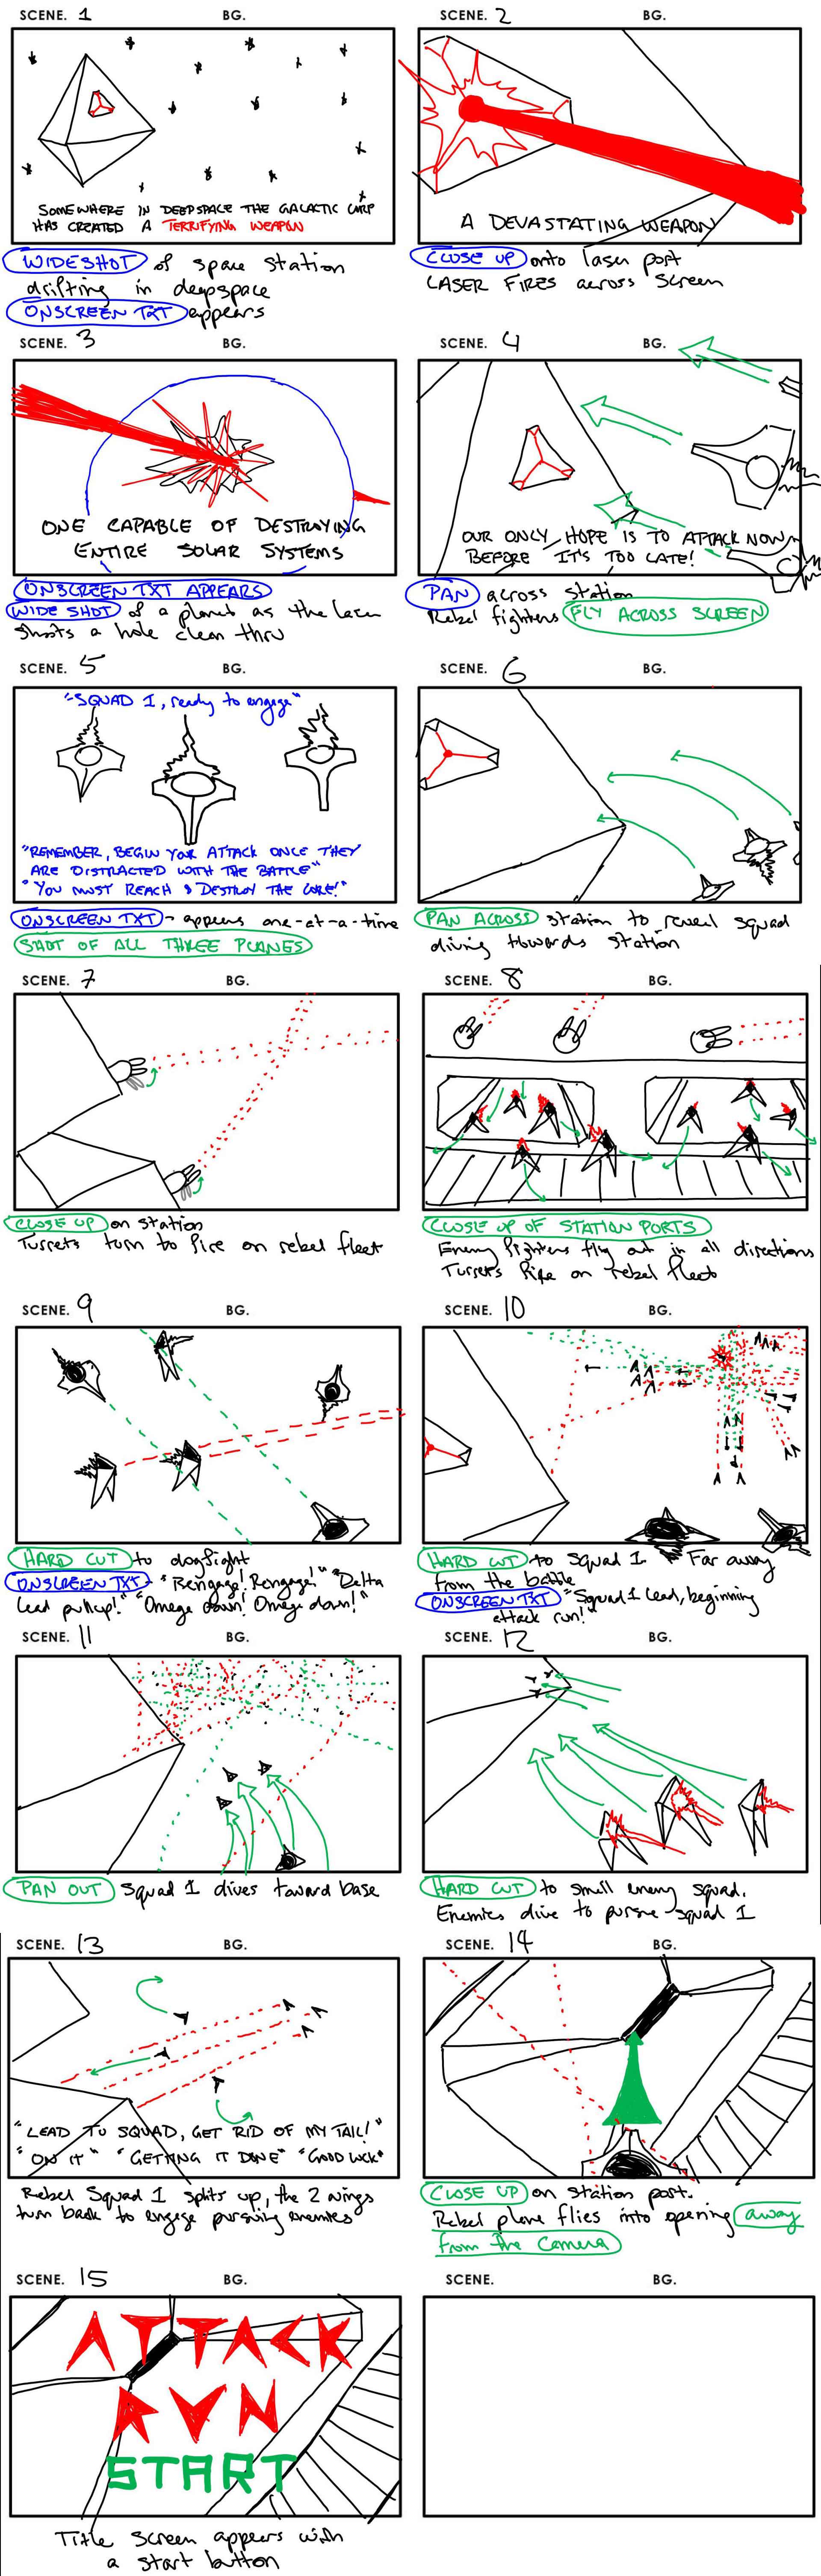 SCENE. 1 BG.
SOMEWHERE IN DEEPSPACE THE GALACTIC CORP
HAS CREATED A TERRIFYING WEAPON
WIDESHOT of space station
drifting in deepspace
ONSCREEN TXT appears
SCENE. 2 BG.
A DEVASTATING WEAPON
CLOSE UP onto laser port
LASER FIRES across screen
SCENE. 3 BG.
ONE CAPABLE OF DESTROYING
ENTIRE SOLAR SYSTEMS
ONSCREEN TXT APPEARS
WIDE SHOT of a planet as the laser
shoots a hole clean thru
SCENE. 4 BG.
OUR ONLY HOPE IS TO ATTACK NOW
BEFORE IT'S TOO LATE!
PAN across station
Rebel fighters FLY ACROSS SCREEN
SCENE. 5 BG.
"SQUAD 1, ready to engage"
"REMEMBER, BEGIN YOUR ATTACK ONCE THEY
ARE DISTRACTED WITH THE BATTLE"
"YOU MUST REACH & DESTROY THE CORE!"
ONSCREEN TXT - appears one-at-a-time
SHOT OF ALL THREE PLANES
SCENE. 6 BG.
PAN ACROSS station to reveal squad
diving towards station
SCENE. 7 BG.
CLOSE UP on station
Turrets turn to fire on rebel fleet
SCENE. 8 BG.
CLOSE UP OF STATION PORTS
Enemy fighters fly out in all directions
Turrets fire on rebel fleet
SCENE. 9 BG.
HARD CUT to dogfight
ONSCREEN TXT - "Rengage! Rengage!" "Delta
lead pullup!" "Omega down! Omega down!"
SCENE. 10 BG.
HARD CUT to squad 1 Far away
from the battle
ONSCREEN TXT "Squad 1 lead, beginning
attack run!"
SCENE. 11 BG.
PAN OUT Squad 1 dives toward base
SCENE. 12 BG.
HARD CUT to small enemy squad.
Enemies dive to pursue squad 1
SCENE. 13 BG.
"LEAD TO SQUAD, GET RID OF MY TAIL!"
"ON IT" "GETTING IT DONE" "GOOD LUCK"
Rebel Squad 1 splits up, the 2 wings
turn back to engage pursuing enemies
SCENE. 14 BG.
CLOSE UP on station port.
Rebel plane flies into opening away
from the camera
SCENE. 15 BG.
ATTACK
RUN
START
Title screen appears with
a start button
SCENE. BG.